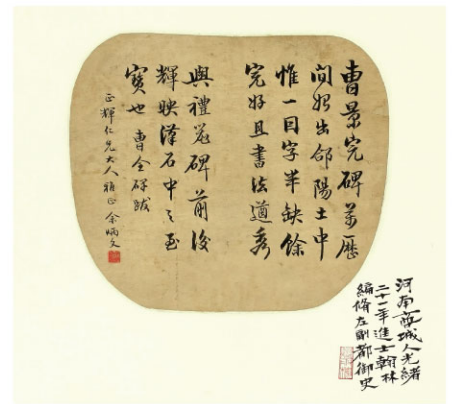 曹景完碑萬歷
間始出郃陽土中
惟一因字半缺餘
完好且書法遒秀
與禮器碑前後
輝映漢石中之至
寶也 曹全碑跋
正輝仁兄大人雅正 余炳文
河南商城人光緒
二十一年進士翰林
編脩左副都御史